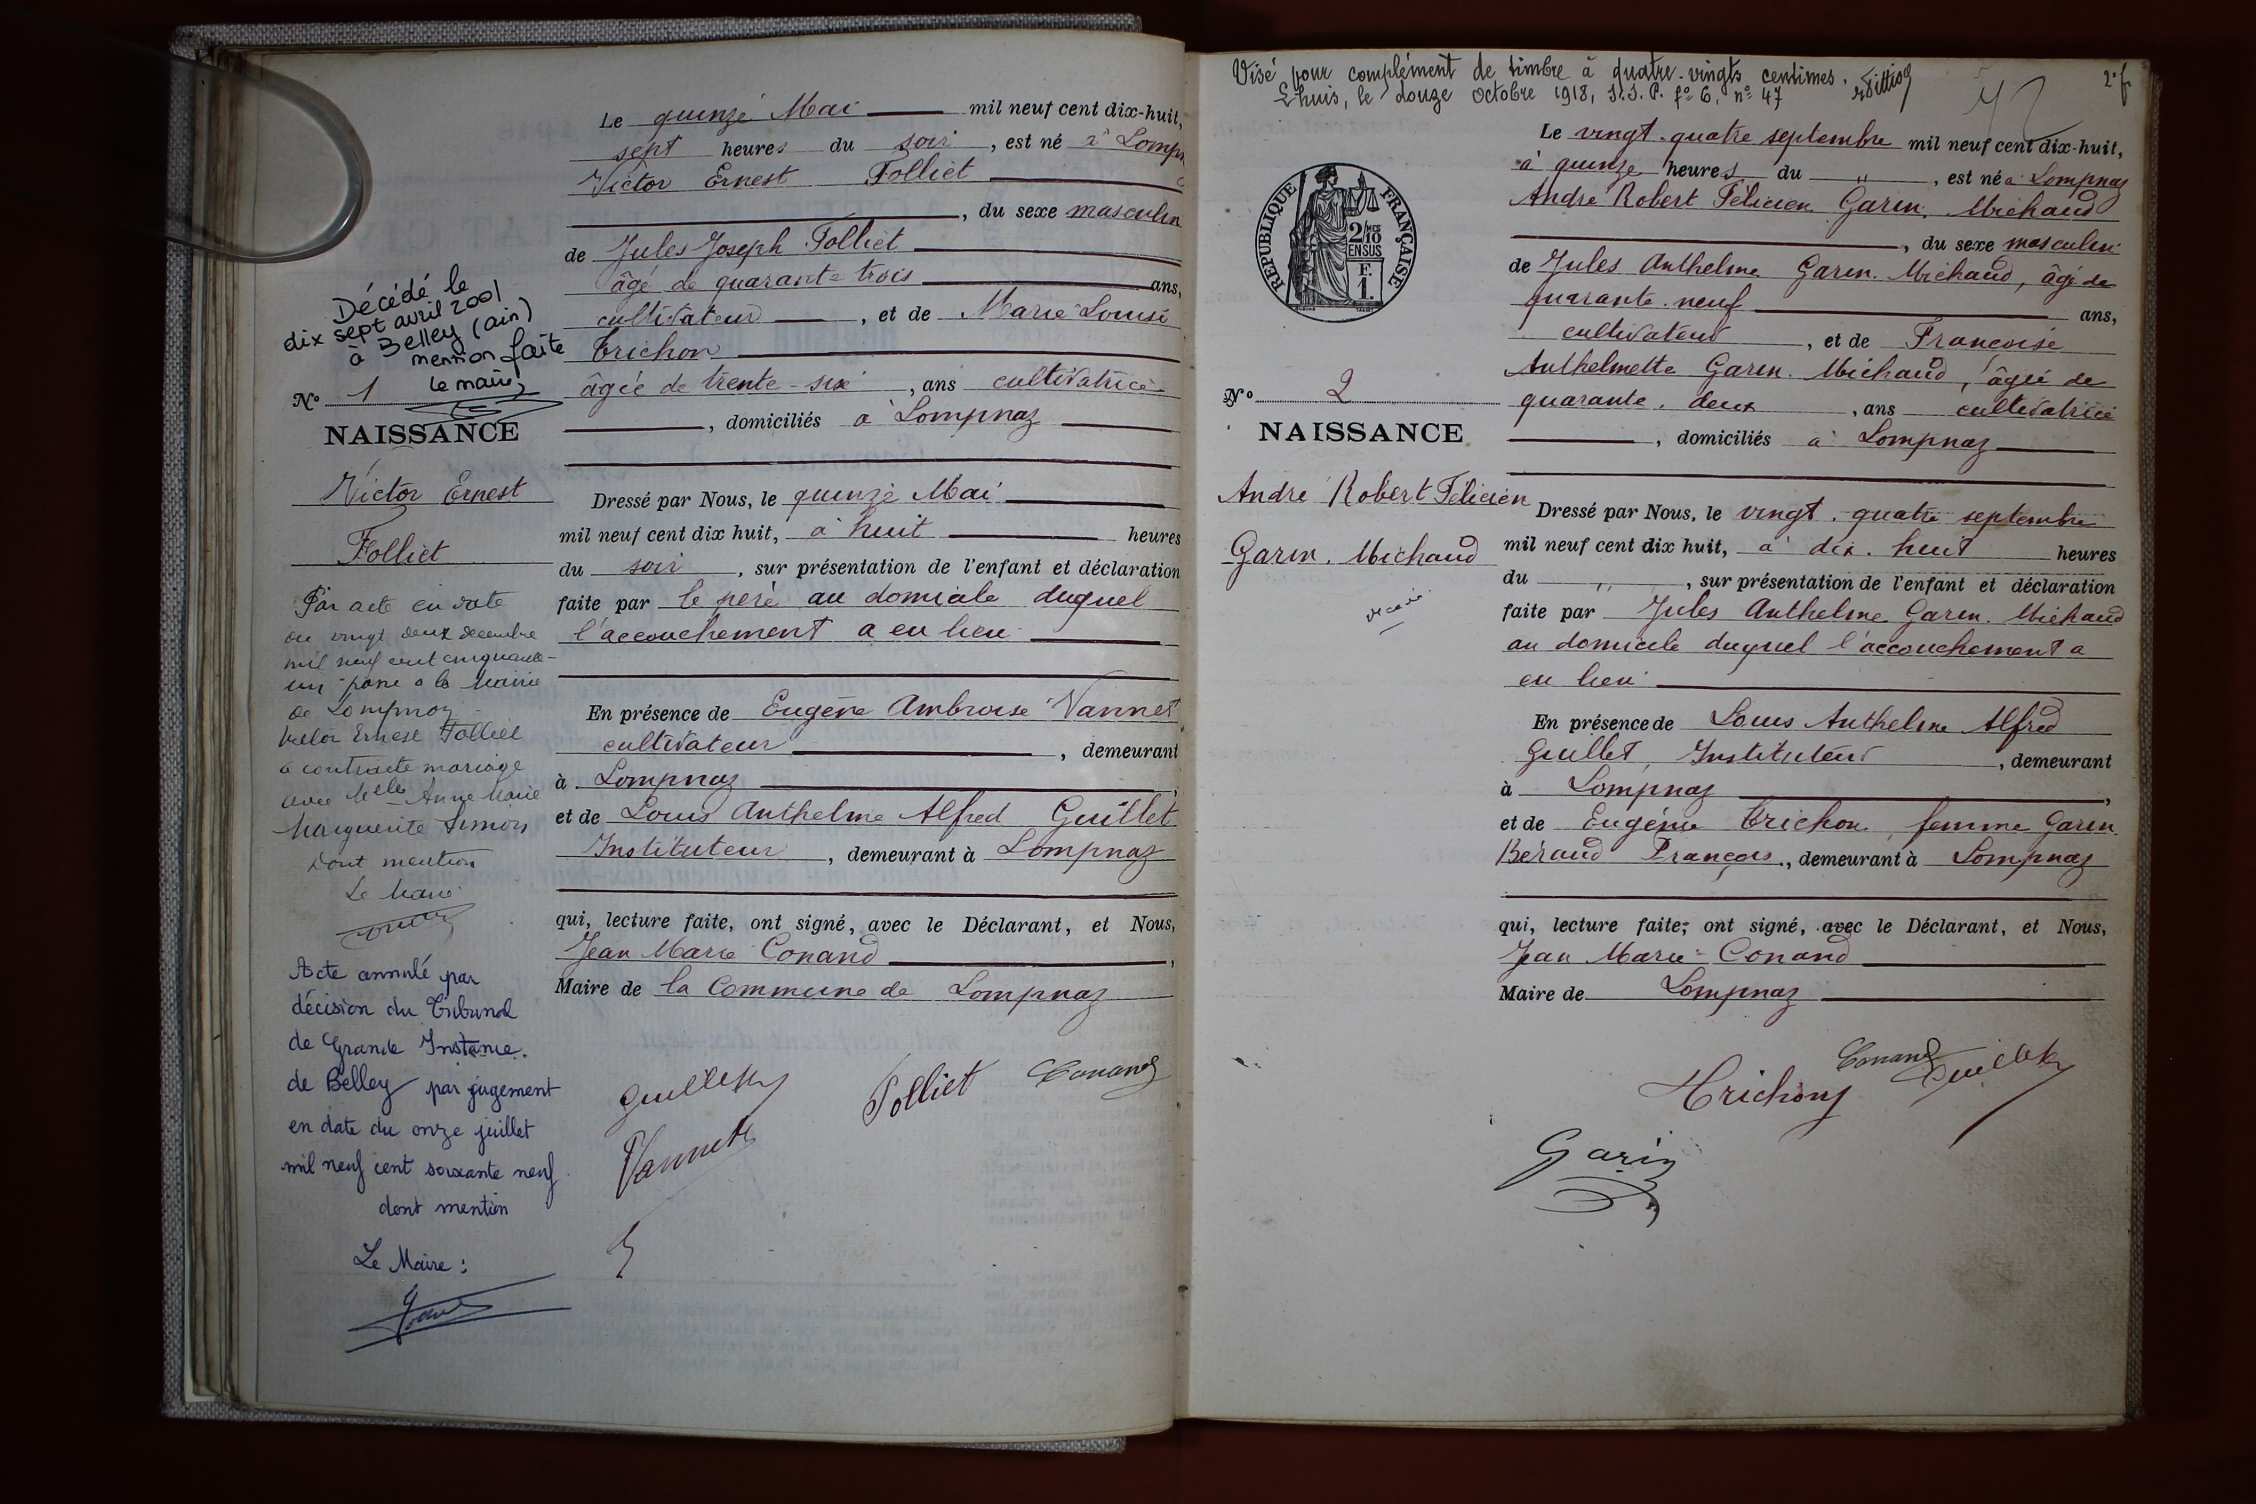 Le quinze Mai mil neuf cent dix-huit,
sept heures du soir, est né à Lompn
Victor Ernest Folliet
, du sexe masculin
de Jules Joseph Folliet
âgé de quarante-trois ans,
cultivateur, et de Marie Louise
Trichon
âgée de trente-six, ans cultivatrice
, domiciliés à Lompnaz
Dressé par Nous, le quinze Mai
mil neuf cent dix huit, à huit heures
du soir, sur présentation de l'enfant et déclaration
faite par le père au domicile duquel
l'accouchement a eu lieu
En présence de Eugène Ambroise Vannet
cultivateur, demeurant
à Lompnaz,
et de Louis Anthelme Alfred Guillet
Instituteur, demeurant à Lompnaz
qui, lecture faite, ont signé, avec le Déclarant, et Nous,
Jean Marie Conand,
Maire de la Commune de Lompnaz
Guillet
Folliet
Conand
Vannet
Décédé le
dix sept avril 2001
à Belley (ain)
mention faite
le maire
N° 1
NAISSANCE
Victor Ernest
Folliet
Par acte en date
du vingt deux decembre
mil neuf cent cinquante-
un passé à la Mairie
de Lompnaz
Victor Ernest Folliet
a contracté mariage
avec Melle Anne Marie
Marguerite Simon
Dont mention
Le Maire
Acte annulé par
décision du Tribunal
de Grande Instance.
de Belley par jugement
en date du onze juillet
mil neuf cent soixante neuf
dont mention
Le Maire :
Visé pour complément de timbre à quatre-vingts centimes.
Lhuis, le douze Octobre 1918, S.S.P. f° 6, n° 47
2e f.
RÉPUBLIQUE FRANÇAISE
2/10
EN SUS
F.
1.
Le vingt-quatre septembre mil neuf cent dix-huit,
à quinze heures du ", est né à Lompnaz
André Robert Félicien Garin-Michaud
, du sexe masculin
de Jules Anthelme Garin-Michaud, âgé de
quarante-neuf ans,
cultivateur, et de Françoise
Anthelmette Garin-Michaud, âgée de
quarante-deux, ans cultivatrice
, domiciliés à Lompnaz
Dressé par Nous, le vingt-quatre septembre
mil neuf cent dix huit, à dix-huit heures
du ", sur présentation de l'enfant et déclaration
faite par Jules Anthelme Garin-Michaud
au domicile duquel l'accouchement a
eu lieu
En présence de Louis Anthelme Alfred
Guillet, Instituteur, demeurant
à Lompnaz,
et de Eugénie Trichon, femme Garin
Béraud François, demeurant à Lompnaz
qui, lecture faite, ont signé, avec le Déclarant, et Nous,
Jean Marie Conand
Maire de Lompnaz
Conand
Guillet
Trichon
Garin
N° 2
NAISSANCE
André Robert Félicien
Garin-Michaud